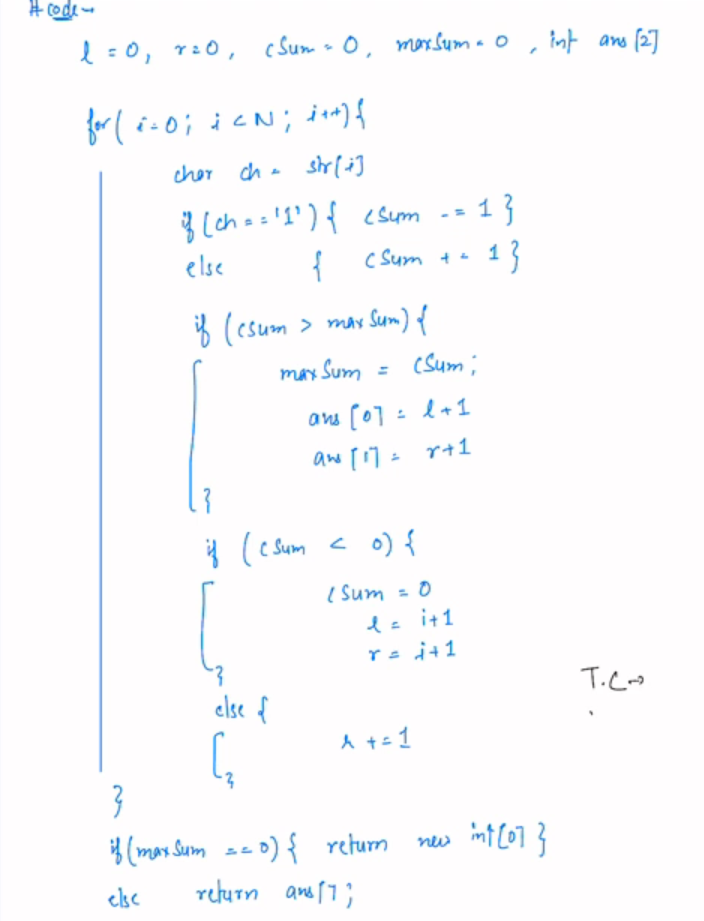 # code→
l = 0, r = 0, cSum = 0, maxSum = 0, int ans[2]
for( i=0; i<N; i++){
char ch = str[i]
if(ch=='1'){ cSum -= 1 }
else { cSum += 1 }
if (csum > maxSum){
maxSum = cSum;
ans[0] = l+1
ans[1] = r+1
}
if (cSum < 0){
cSum = 0
l = i+1
r = i+1
}
else {
r += 1
}
}
if(maxSum == 0){ return new int[0] }
else return ans[];
T.C→